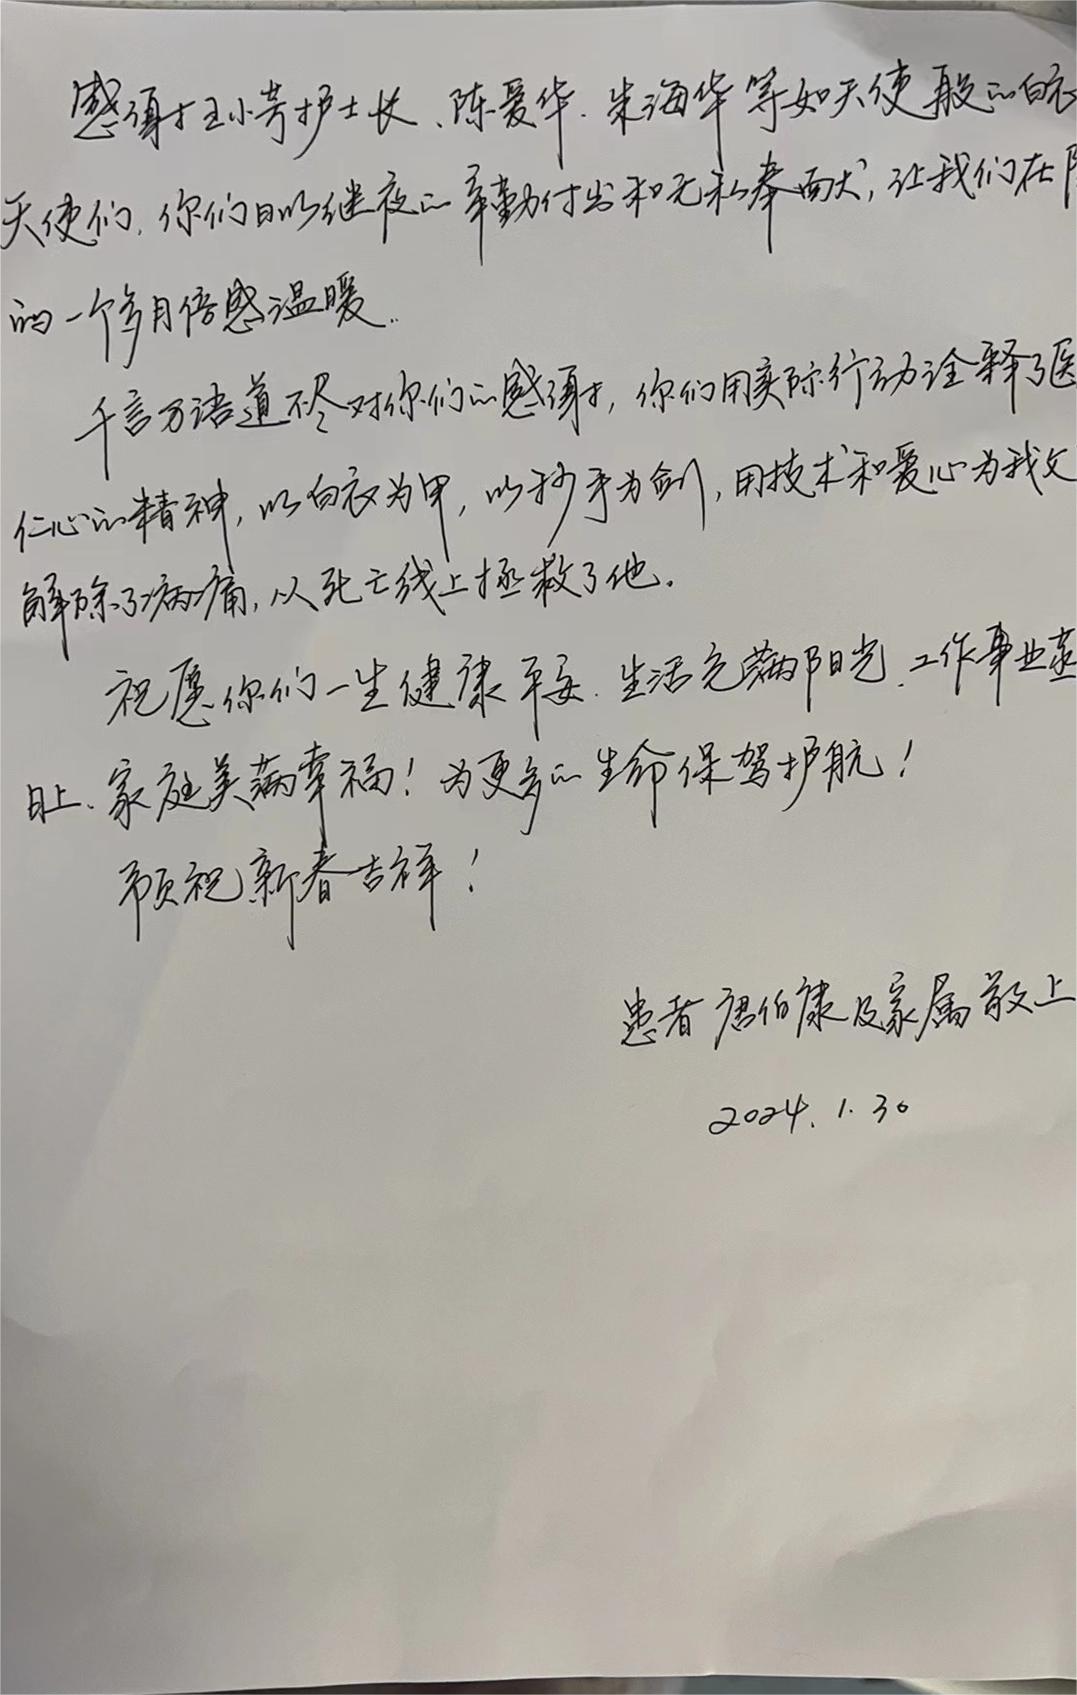 感谢王小芳护士长、陈爱华、朱海华等如天使般的白衣
天使们,你们日以继夜的辛勤付出和无私奉献,让我们在
的一个多月倍感温暖.
千言万语道不尽对你们的感谢,你们用实际行动诠释了医
仁心的精神,以白衣为甲,以妙手为剑,用技术和爱心为我父
解除了病痛,从死亡线上拯救了他.
祝愿你们一生健康平安、生活充满阳光、工作事业蒸
日上、家庭美满幸福!为更多的生命保驾护航!
预祝新春吉祥!
患者唐伯康及家属敬上
2024.1.30